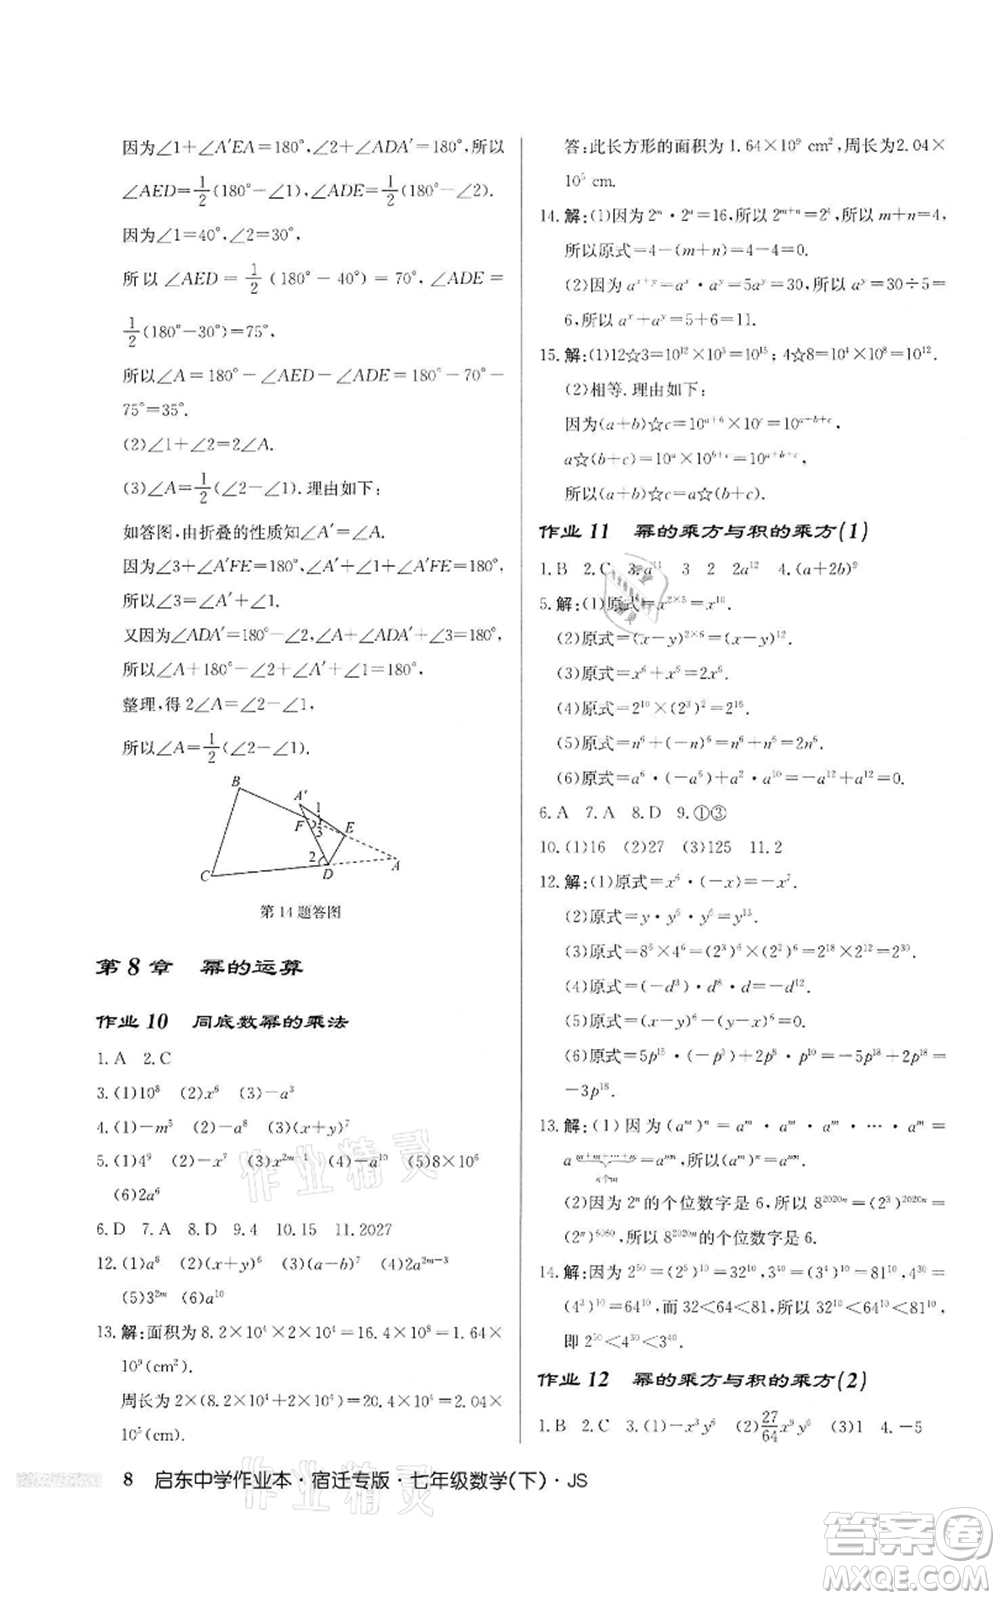 因为∠1+∠A′EA=180°,∠2+∠ADA′=180°,所以
∠AED=1/2(180°-∠1),∠ADE=1/2(180°-∠2).
因为∠1=40°,∠2=30°,
所以∠AED=1/2(180°-40°)=70°,∠ADE=
1/2(180°-30°)=75°,
所以∠A=180°-∠AED-∠ADE=180°-70°-
75°=35°.
(2)∠1+∠2=2∠A.
(3)∠A=1/2(∠2-∠1).理由如下:
如答图,由折叠的性质知∠A′=∠A.
因为∠3+∠A′FE=180°,∠A+∠1+∠A′FE=180°,
所以∠3=∠A′+∠1.
又因为∠ADA′=180°-∠2,∠A+∠ADA′+∠3=180°,
所以∠A+180°-∠2+∠A′+∠1=180°,
整理,得2∠A=∠2-∠1,
所以∠A=1/2(∠2-∠1).
B A′ 1 F 3 E 2 C D A
第14题答图
第8章 幂的运算
作业10 同底数幂的乘法
1.A 2.C
3.(1)10⁸ (2)x⁶ (3)-a³
4.(1)-m⁵ (2)-a⁸ (3)(x+y)⁷
5.(1)4⁹ (2)-x⁷ (3)x²ᵐ⁻¹ (4)-a¹⁰ (5)8×10⁶
(6)2a⁶
6.D 7.A 8.D 9.4 10.15 11.2027
12.(1)a⁸ (2)(x+y)⁶ (3)(x-y)⁶ (4)a²ᵐ⁻³
(5)3²ᵐ (6)a¹⁰
13.解:面积为8.2×10⁴×2×10⁴=16.4×10⁸=1.64×
10⁹(cm²).
周长为2×(8.2×10⁴+2×10⁴)=20.4×10⁴=2.04×
10⁵(cm).
答:此长方形的面积为1.64×10⁹ cm²,周长为2.04×
10⁵ cm.
14.解:(1)因为2ᵐ·2ⁿ=16,所以2ᵐ⁺ⁿ=2⁴,所以m+n=4,
所以原式=4-(m+n)=4-4=0.
(2)因为aˣ⁺ʸ=aˣ·aʸ=5aʸ=30,所以aʸ=30÷5=
6,所以aˣ+aʸ=5+6=11.
15.解:(1)12☆3=10¹²×10³=10¹⁵;4☆8=10⁴×10⁸=10¹².
(2)相等.理由如下:
因为(a+b)☆c=10ᵃ⁺ᵇ×10ᶜ=10ᵃ⁺ᵇ⁺ᶜ,
a☆(b+c)=10ᵃ×10ᵇ⁺ᶜ=10ᵃ⁺ᵇ⁺ᶜ,
所以(a+b)☆c=a☆(b+c).
作业11 幂的乘方与积的乘方(1)
1.B 2.C 3.a¹¹ 3 2 2a¹² 4.(a+2b)⁹
5.解:(1)原式=x²ˣ⁵=x¹⁰.
(2)原式=(x-y)²ˣ⁶=(x-y)¹².
(3)原式=x⁶+x⁶=2x⁶.
(4)原式=2¹⁰×(2³)²=2¹⁶.
(5)原式=n⁶+(-n)⁶=n⁶+n⁶=2n⁶.
(6)原式=a⁶·(-a⁶)+a²·a¹⁰=-a¹²+a¹²=0.
6.A 7.A 8.D 9.①③
10.(1)16 (2)27 (3)125 11.2
12.解:(1)原式=x⁶·(-x)=-x⁷.
(2)原式=y·y⁶·y⁶=y¹³.
(3)原式=8⁵×4⁶=(2³)⁵×(2²)⁶=2¹⁵×2¹²=2²⁷.
(4)原式=(-d³)·d⁸·(-d)=d¹².
(5)原式=x¹⁰·(-x³)=-x¹³.
(6)原式=5p¹⁵·(-p³)+2p¹⁸=-5p¹⁸+2p¹⁸=
-3p¹⁸.
13.解:(1)因为(aᵐ)ⁿ=aᵐ·aᵐ·aᵐ·…·aᵐ=
aᵐ⁺ᵐ⁺…⁺ᵐ(n个m)=aᵐⁿ,所以(aᵐ)ⁿ=aᵐⁿ.
(2)因为2ⁿ的个位数字是6,所以8²⁰²⁰ⁿ=(2³)²⁰²⁰ⁿ=
(2ⁿ)⁶⁰⁶⁰,所以8²⁰²⁰ⁿ的个位数字是6.
14.解:因为2⁵⁰=(2⁵)¹⁰=32¹⁰,3⁴⁰=(3⁴)¹⁰=81¹⁰,4³⁰=
(4³)¹⁰=64¹⁰,而32<64<81,所以32¹⁰<64¹⁰<81¹⁰,
即2⁵⁰<4³⁰<3⁴⁰.
作业12 幂的乘方与积的乘方(2)
1.B 2.C 3.(1)-x³y⁶ (2)27/64x⁹y⁶ (3)1 4.-5
8 启东中学作业本·宿迁专版·七年级数学(下)·JS
作业精灵
作业精灵
答案圈
MXQE.COM